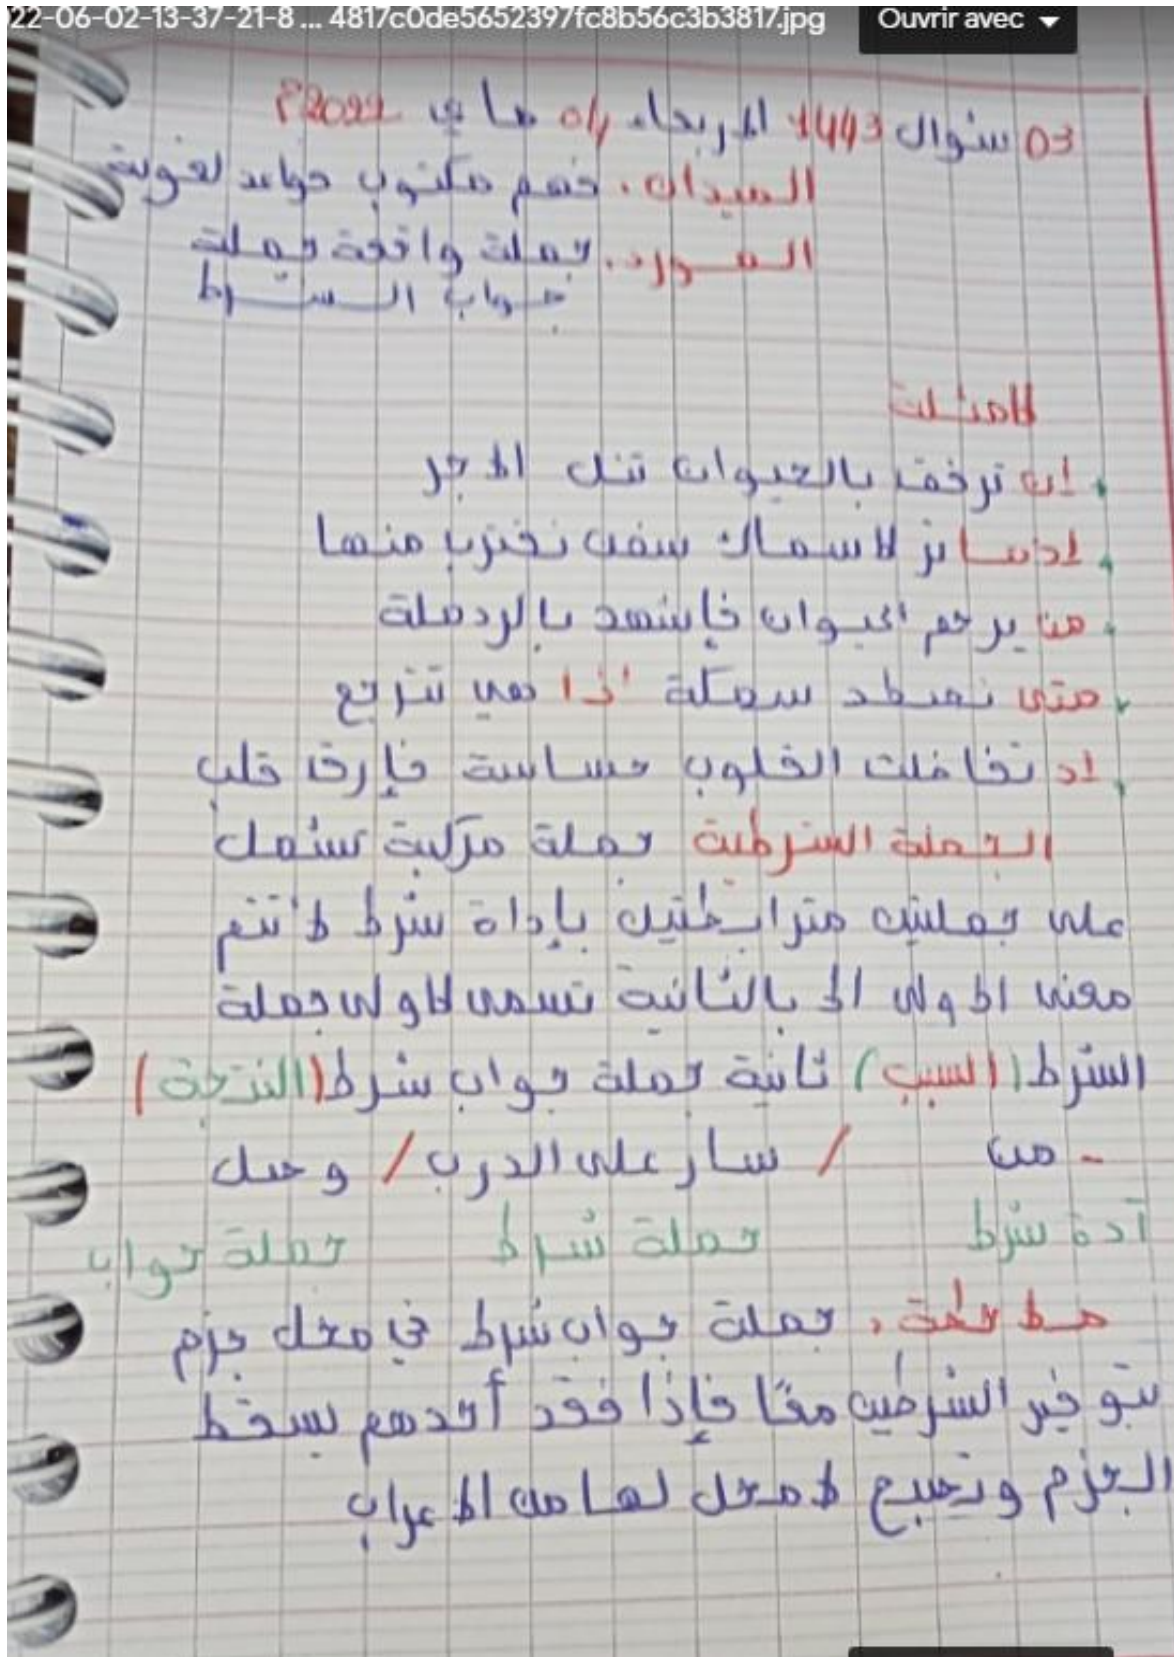 22-06-02-13-37-21-8 ... 4817c0de5652397fc8b56c3b3817.jpg
Ouvrir avec
03 شوال 1443 الاربعاء 04 ماي 2022م
الميدان. فهم مكتوب قواعد لغوية
المورد. جملة واقعة جملة
جواب الشرط
لامثلة
إن ترفق بالحيوان تنل الاجر
إدما تر لاسماك سفن تقترب منها
من يرحم الحيوان فاشهد بالرحمة
متى نصطد سمكة اذا هي تنزعج
إد تغافلت القلوب حساسة فارق قلب
الجملة الشرطية جملة مركبة تشمل
على جملتين مترابطتين بإداة شرط لا تتم
معنى الاولى الا بالثانية تسمى لاولى جملة
الشرط (السبب) ثانية جملة جواب شرط (النتجة)
- من / سار على الدرب / وصل
آدة شرط جملة شرط جملة جواب
جملة جواب شرط في محل جزم
بتوفير الشرطين معًا فإذا فقد أحدهم يسقط
الجزم وتصبح لا محل لها من الاعراب